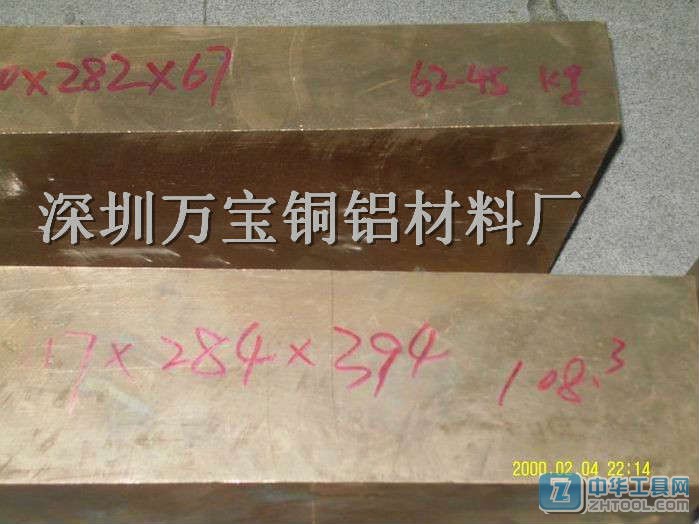 0×282×67 62.45 kg
深圳万宝铜铝材料厂
117×284×394 108.3
2000.02.04 22:14
中华工具网
ZHTOOL.COM